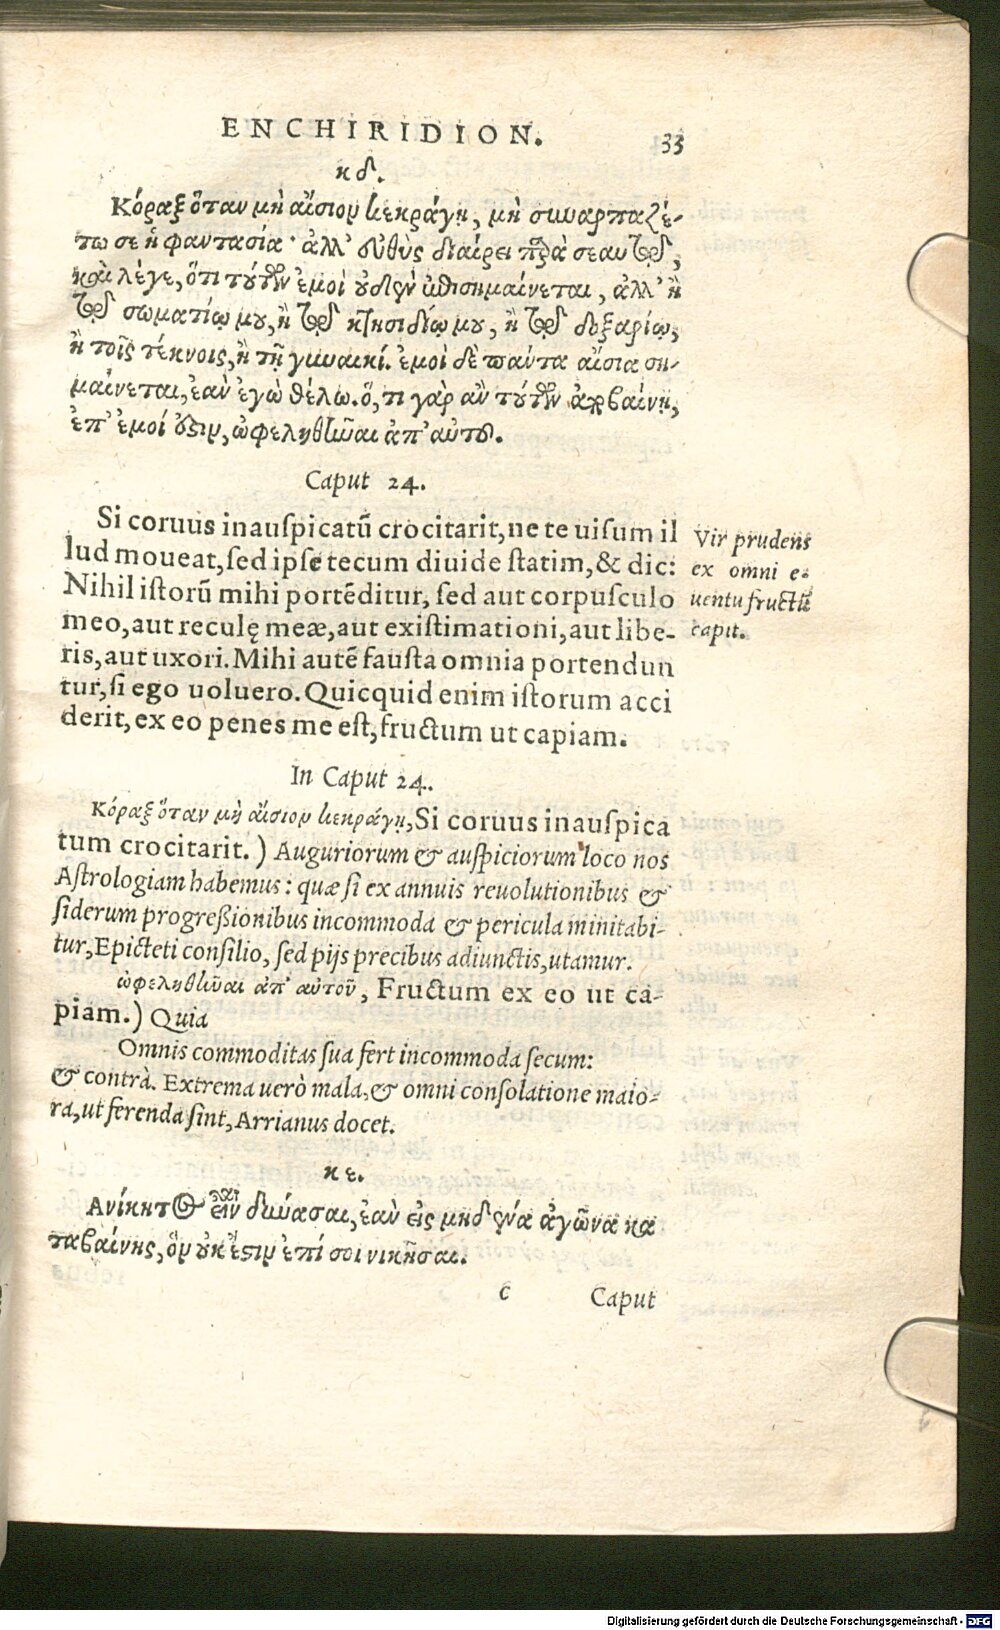 ENCHIRIDION. 33
κδ.
Κόραξ ὅταν μὴ αἴσιον κεκράγῃ, μὴ συναρπαζέ-
τω σε ἡ φαντασία· ἀλλ' εὐθὺς διαίρει παρὰ σεαυτῷ,
καὶ λέγε, ὅτι τούτων ἐμοὶ οὐδὲν ἐπισημαίνεται, ἀλλ' ἢ
τῷ σωματίῳ μου, ἢ τῷ κτησιδίῳ μου, ἢ τῷ δοξαρίῳ,
ἢ τοῖς τέκνοις, ἢ τῇ γυναικί. ἐμοὶ δὲ πάντα αἴσια ση-
μαίνεται, ἐὰν ἐγὼ θέλω. ὅ, τι γὰρ ἂν τούτων ἀποβαίνῃ,
ἐπ' ἐμοί ἐστιν, ὠφεληθῆναι ἀπ' αὐτοῦ.
Caput 24.
Si coruus inauſpicatũ crocitarit, ne te uiſum il
lud moueat, ſed ipſe tecum diuide ſtatim, & dic:
Nihil iſtorũ mihi portẽditur, ſed aut corpuſculo
meo, aut reculę meæ, aut exiſtimationi, aut libe-
ris, aut uxori. Mihi autẽ fauſta omnia portendun
tur, ſi ego uoluero. Quicquid enim iſtorum acci
derit, ex eo penes me eſt, fructum ut capiam.
Vir prudens
ex omni e-
uentu fructũ
capit.
In Caput 24.
Κόραξ ὅταν μὴ αἴσιον κεκράγῃ, Si coruus inauſpica
tum crocitarit. ) Auguriorum & auſpiciorum loco nos
Aſtrologiam habemus: quæ ſi ex annuis reuolutionibus &
ſiderum progreßionibus incommoda & pericula minitabi-
tur, Epicteti conſilio, ſed pijs precibus adiunctis, utamur.
ὠφεληθῆναι ἀπ' αὐτοῦ, Fructum ex eo ut ca-
piam. ) Quia
Omnis commoditas ſua fert incommoda ſecum:
& contrà. Extrema uerò mala, & omni conſolatione maio-
ra, ut ferenda ſint, Arrianus docet.
κε.
Ἀνίκητος εἶναι δύνασαι, ἐὰν εἰς μηδένα ἀγῶνα κα
ταβαίνῃς, ὃν οὐκ ἔστιν ἐπί σοι νικῆσαι.
c Caput
Digitalisierung gefördert durch die Deutsche Forschungsgemeinschaft - DFG